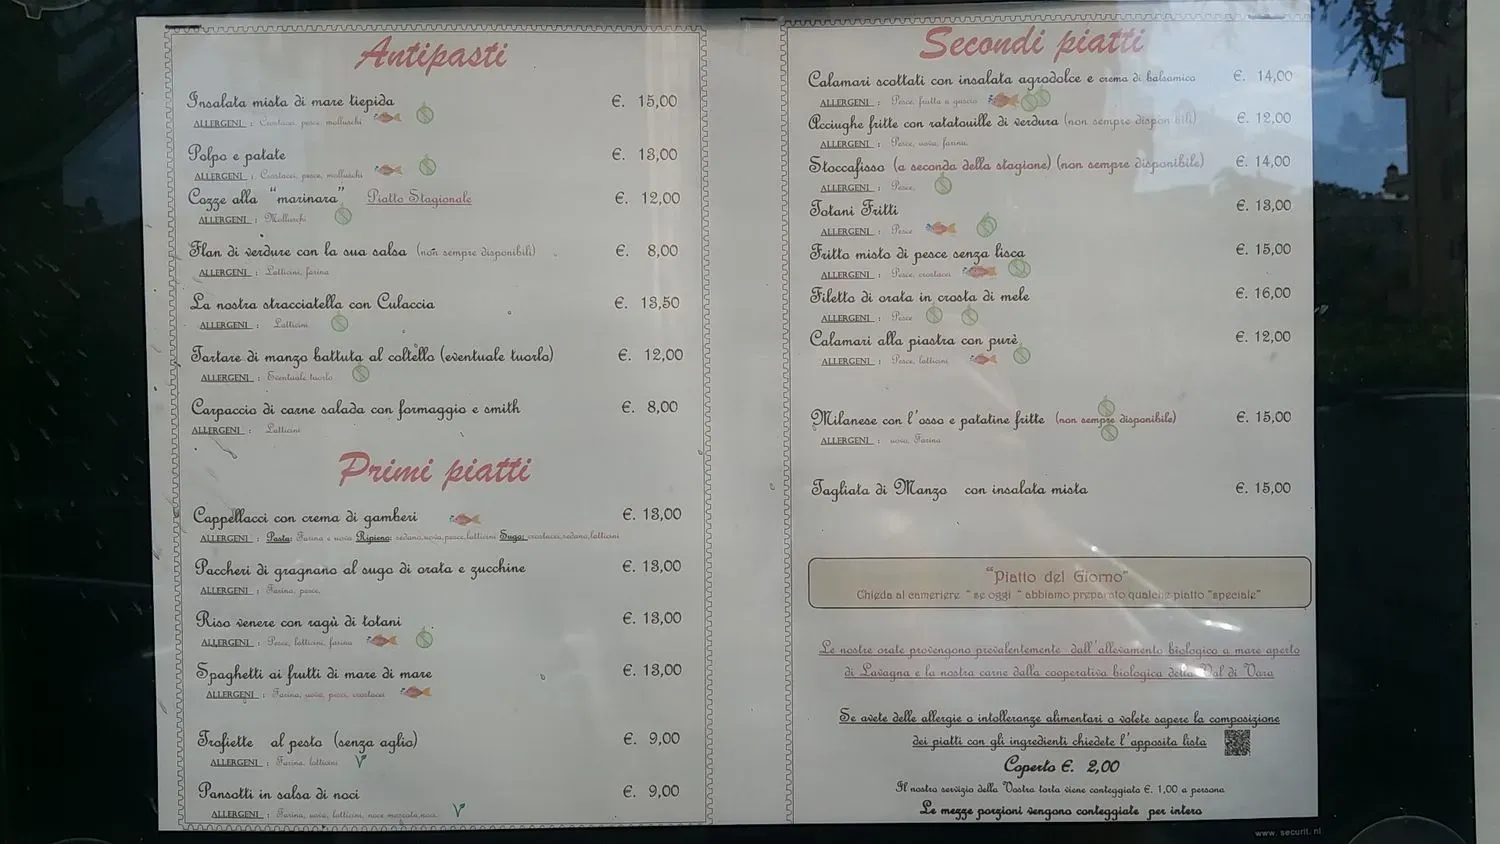 Antipasti
Insalata mista di mare tiepida €. 15,00
ALLERGENI : Crostacei, pesce, molluschi
Polpo e patate €. 13,00
ALLERGENI : Crostacei, pesce, molluschi
Cozze alla "marinara" Piatto Stagionale €. 12,00
ALLERGENI : Molluschi
Flan di verdure con la sua salsa (non sempre disponibili) €. 8,00
ALLERGENI : Latticini, farina
La nostra stracciatella con Culaccia €. 13,50
ALLERGENI : Latticini
Tartare di manzo battuta al coltello (eventuale tuorlo) €. 12,00
ALLERGENI : Eventuale tuorlo
Carpaccio di carne salada con formaggio e smith €. 8,00
ALLERGENI : Latticini
Primi piatti
Cappellacci con crema di gamberi €. 13,00
ALLERGENI : Pasta: Farina e uova Ripieno: sedano,uova,pesce,latticini Sugo: crostacei,sedano,latticini
Paccheri di gragnano al sugo di orata e zucchine €. 13,00
ALLERGENI : Farina, pesce,
Riso venere con ragù di totani €. 13,00
ALLERGENI : Pesce, latticini, farina
Spaghetti ai frutti di mare di mare €. 13,00
ALLERGENI : Farina, uova, pesci, crostacei
Trofiette al pesto (senza aglio) €. 9,00
ALLERGENI : Farina, latticini V
Pansotti in salsa di noci €. 9,00
ALLERGENI : Farina, uova, latticini, noce moscata,noci V
Secondi piatti
Calamari scottati con insalata agrodolce e crema di balsamico €. 14,00
ALLERGENI : Pesce, frutta a guscio
Acciughe fritte con ratatouille di verdura (non sempre disponibili) €. 12,00
ALLERGENI : Pesce, uova, farina,
Stoccafisso (a seconda della stagione) (non sempre disponibile) €. 14,00
ALLERGENI : Pesce,
Totani Fritti €. 13,00
ALLERGENI : Pesce
Fritto misto di pesce senza lisca €. 15,00
ALLERGENI : Pesce, crostacei
Filetto di orata in crosta di mele €. 16,00
ALLERGENI : Pesce
Calamari alla piastra con purè €. 12,00
ALLERGENI : Pesce, latticini
Milanese con l'osso e patatine fritte (non sempre disponibile) €. 15,00
ALLERGENI : uova, Farina
Tagliata di Manzo con insalata mista €. 15,00
"Piatto del Giorno"
Chieda al cameriere " se oggi " abbiamo preparato qualche piatto "speciale"
Le nostre orate provengono prevalentemente dall'allevamento biologico a mare aperto
di Lavagna e la nostra carne dalla cooperativa biologica della Val di Vara
Se avete delle allergie o intolleranze alimentari o volete sapere la composizione
dei piatti con gli ingredienti chiedete l'apposita lista
Coperto €. 2,00
Il nostro servizio della Vostra torta viene conteggiato €. 1,00 a persona
Le mezze porzioni vengono conteggiate per intero
www.securit.nl